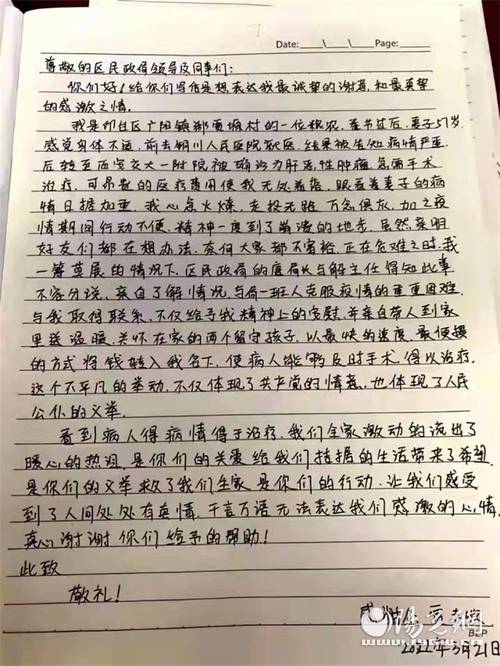 Date: Page:
尊敬的区民政局领导及同事们:
你们好!给你们写信是想表达我最诚挚的谢意和最真挚
的感激之情。
我是印台区广阳镇郝贾塬村的一位村农,春节过后,妻子51岁,
感觉身体不适,前去铜川人民医院就医,结果被告知病情严重,
后转至西安交大一附院被确诊为肝恶性肿瘤,急需手术
治疗,可昂贵的医疗费用使我无处着落,眼看着妻子的病
情日据加重,我心急火燎,走投无路,万念俱灰,加之疫
情期间行动不便,精神一度到了崩溃的地步。虽然亲朋
好友们都在想办法,奈何大家都不富裕,正在危难之时,我
一筹莫展的情况下,区民政局的局长与解主任得知此事
不容分说,亲自了解情况,与局一班人克服疫情的重重困难,
与我取得联系,不仅给予我精神上的安慰,并亲自带人到家
里送温暖,关怀在家的两个留守孩子,以最快的速度,最便捷
的方式将钱转入我名下,使病人能够及时手术,得以治疗,
这个不平凡的举动,不仅体现了共产党的情意,也体现了人民
公仆的义举。
看到病人得病情得于治疗,我们全家激动的流出了
暖心的热泪,是你们的关爱给我们拮据的生活带来了希望,
是你们的义举救了我们全家,是你们的行动,让我们感受
到了人间处处有真情,千言万语无法表达我们感激的心情,
真心谢谢你们给予的帮助!
此致
敬礼!
感谢人
BLP
2022年3月21日